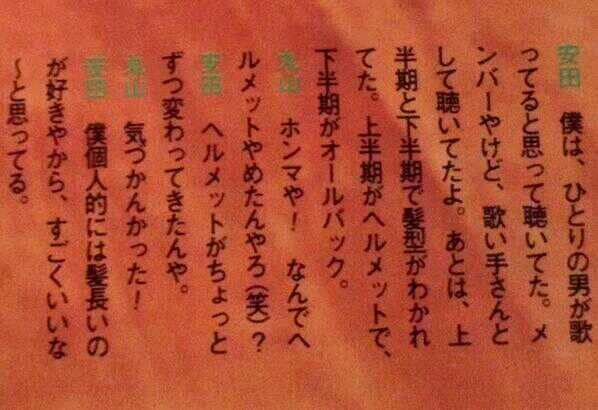 安田　僕は、ひとりの男が歌
ってると思って聴いてた。メ
ンバーやけど、歌い手さんと
して聴いてたよ。あとは、上
半期と下半期で髪型がわかれ
てた。上半期がヘルメットで、
下半期がオールバック。
丸山　ホンマや！　なんでヘ
ルメットやめたんやろ（笑）？
安田　ヘルメットがちょっと
ずつ変わってきたんや。
丸山　気づかんかった！
安田　僕個人的には髪長いの
が好きやから、すごくいいな
〜と思ってる。